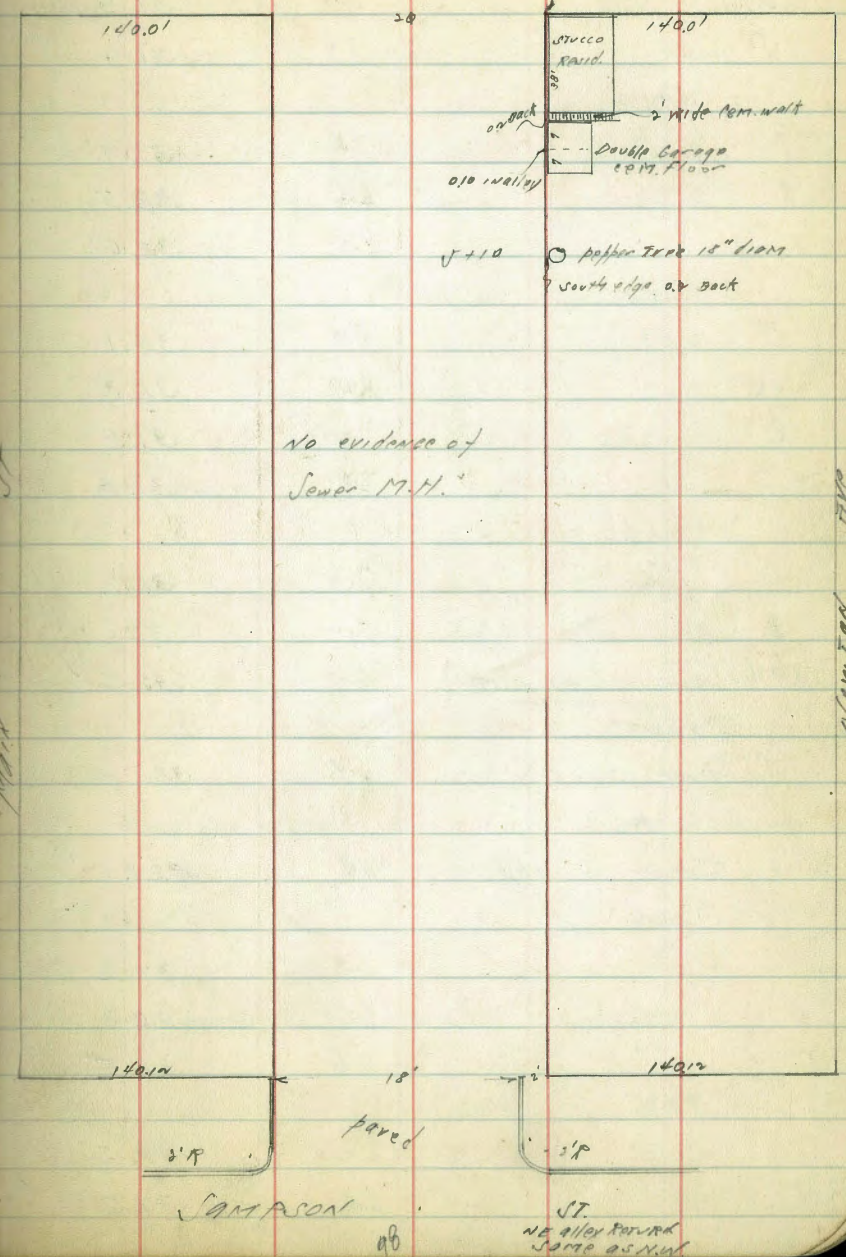 140.0' 20 140.0'
Stucco
Resid.
38'
0.2 Back 2' wide Cem. walk
Double Garage
cem. floor
0.10 in alley
5+10 pepper Tree 18" diam
South edge 0.2 Back
No evidence of
Sewer M.H.
140.12 18' 2' 140.12
paved
2'R 2'R
SAMPSON ST.
NE alley Return
Same as N.W
98